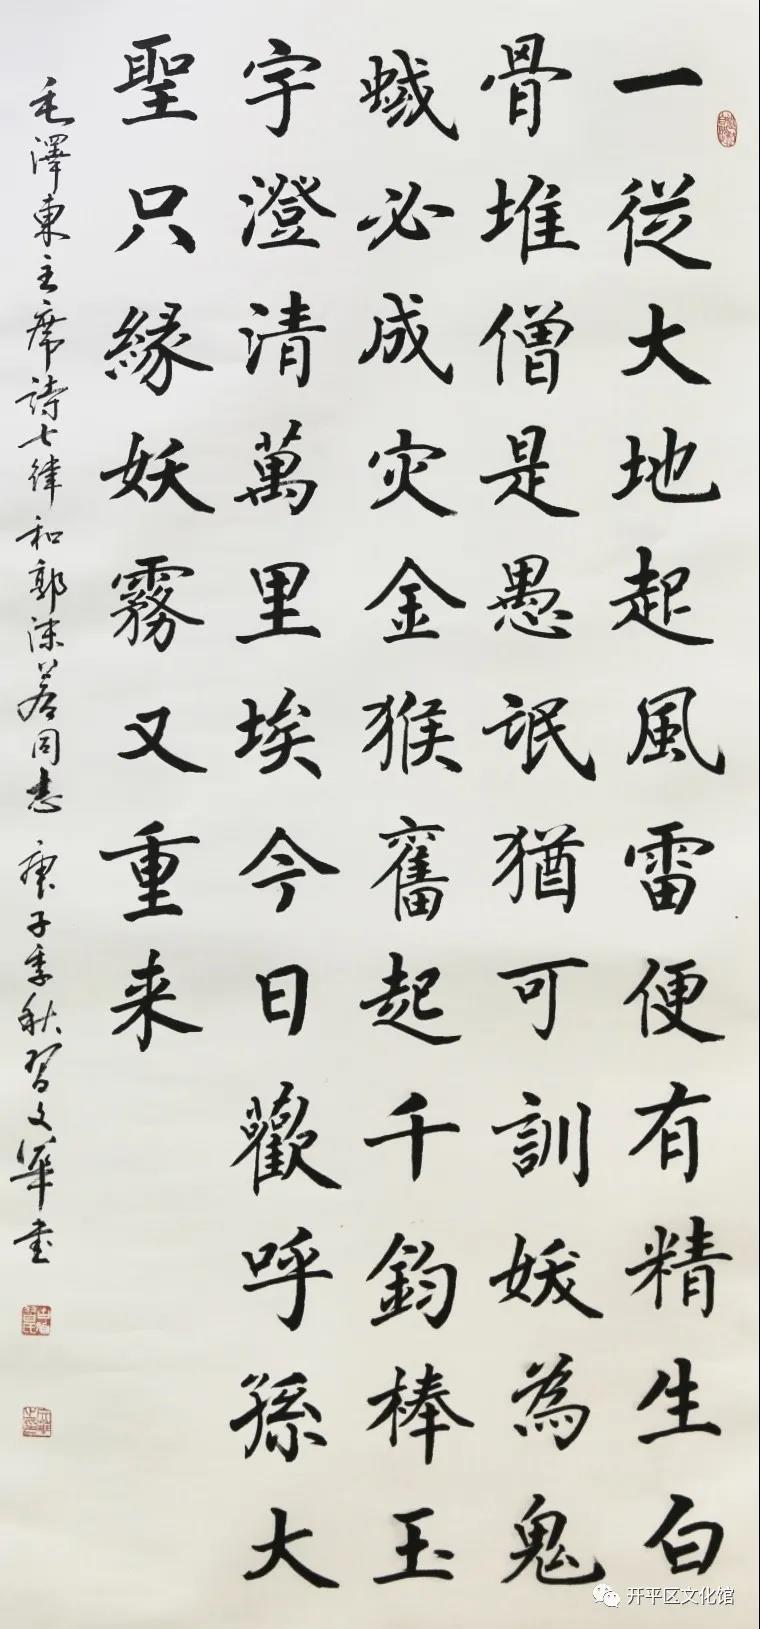 一從大地起風雷便有精生白
骨堆僧是愚氓猶可訓妖為鬼
蜮必成灾金猴奮起千鈞棒玉
宇澄清萬里埃今日歡呼孫大
聖只緣妖霧又重来
毛澤東主席詩七律和郭沫若同志 庚子季秋習文華書
开平区文化馆